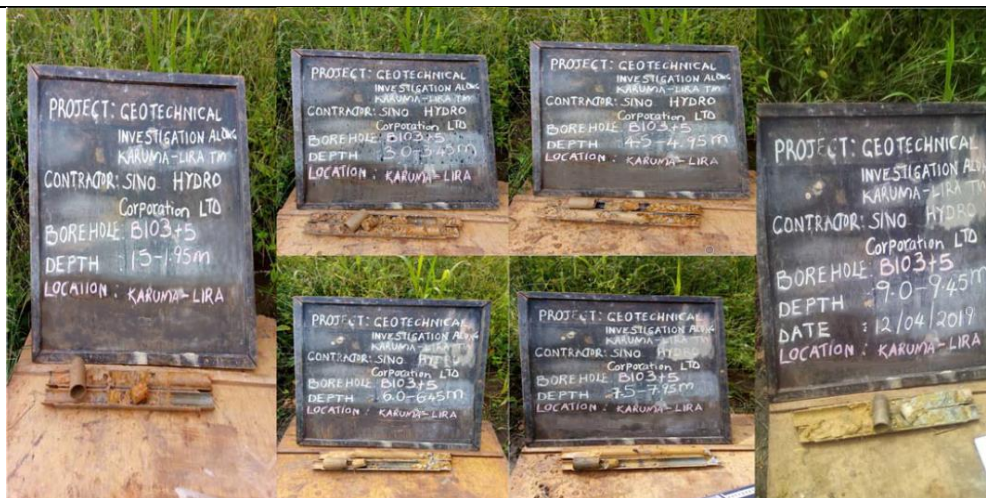 PROJECT: GEOTECHNICAL
INVESTIGATION ALONG
KARUMA-LIRA TM
CONTRACTOR: SINO HYDRO
Corporation LTD
BOREHOLE: B103+5
DEPTH : 1.5-1.95m
LOCATION : KARUMA-LIRA
PROJECT: GEOTECHNICAL
INVESTIGATION ALONG
KARUMA-LIRA TM
CONTRACTOR: SINO HYDRO
Corporation LTD
BOREHOLE: B103+5
DEPTH : 3.0-3.45m
LOCATION : KARUMA-LIRA
PROJECT: GEOTECHNICAL
INVESTIGATION ALONG
KARUMA-LIRA TM
CONTRACTOR: SINO HYDRO
Corporation LTD
BOREHOLE: B103+5
DEPTH : 4.5-4.95m
LOCATION : KARUMA-LIRA
PROJECT: GEOTECHNICAL
INVESTIGATION ALONG
KARUMA-LIRA TM
CONTRACTOR: SINO HYDRO
Corporation LTD
BOREHOLE: B103+5
DEPTH : 6.0-6.45m
LOCATION : KARUMA-LIRA
PROJECT: GEOTECHNICAL
INVESTIGATION ALONG
KARUMA-LIRA TM
CONTRACTOR: SINO HYDRO
Corporation LTD
BOREHOLE: B103+5
DEPTH : 7.5-7.95m
LOCATION : KARUMA-LIRA
PROJECT: GEOTECHNICAL
INVESTIGATION ALONG
KARUMA-LIRA TM
CONTRACTOR: SINO HYDRO
Corporation LTD
BOREHOLE: B103+5
DEPTH : 9.0-9.45m
DATE : 12/04/2019
LOCATION : KARUMA-LIRA